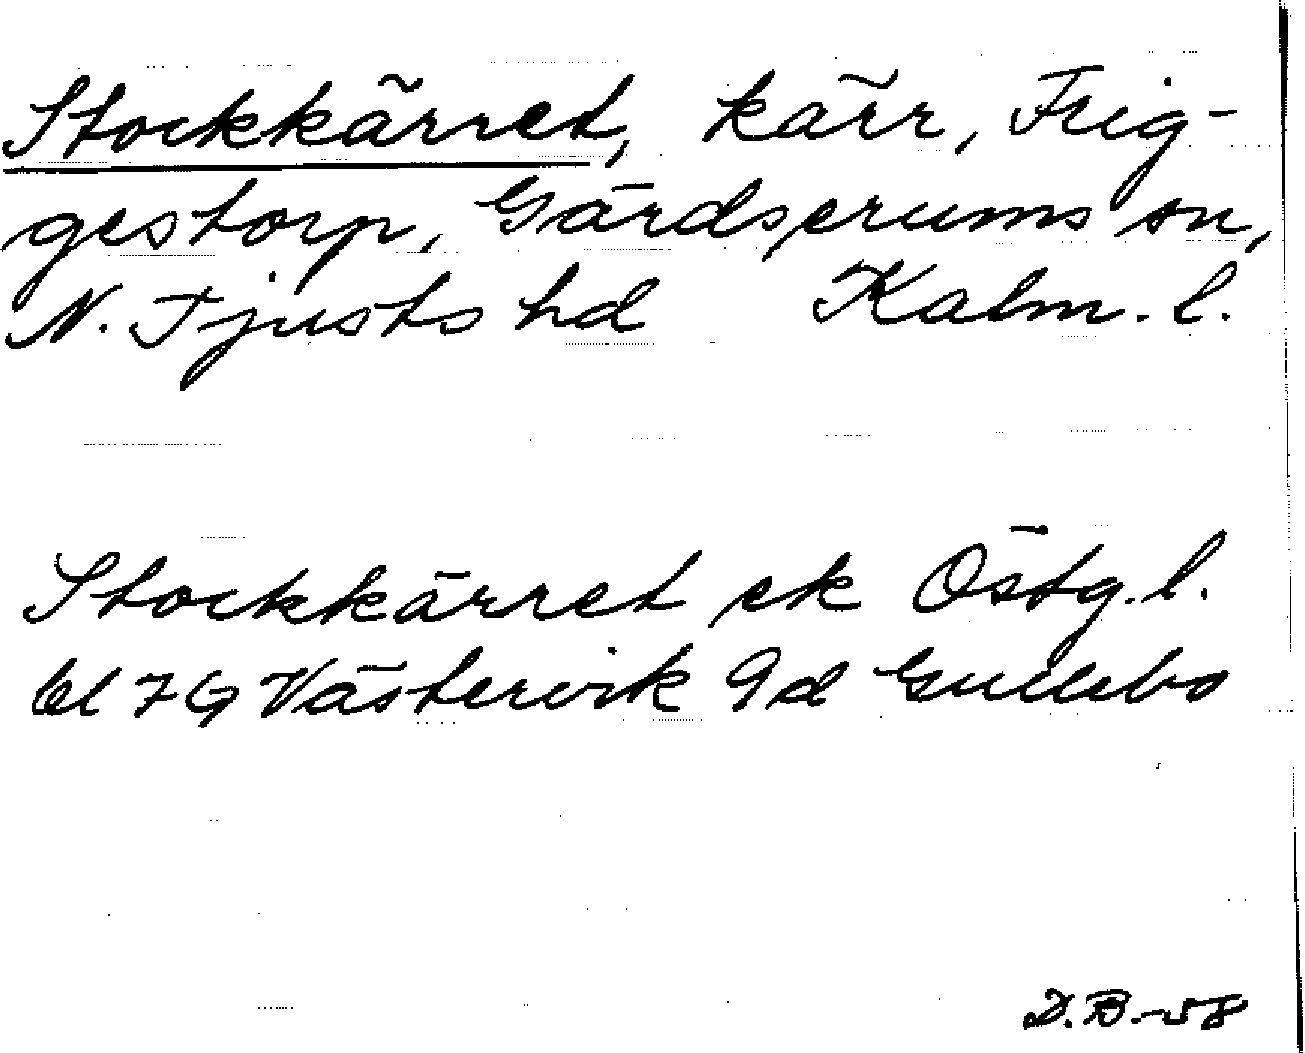 Stockkärret, kärr, Frig-
gestorp, Gärdserums sn,
N. Tjusts hd Kalm. l.
Stockkärret ek Östg. l.
bl 7G Västervik 9d Gullebo
D.B.-58